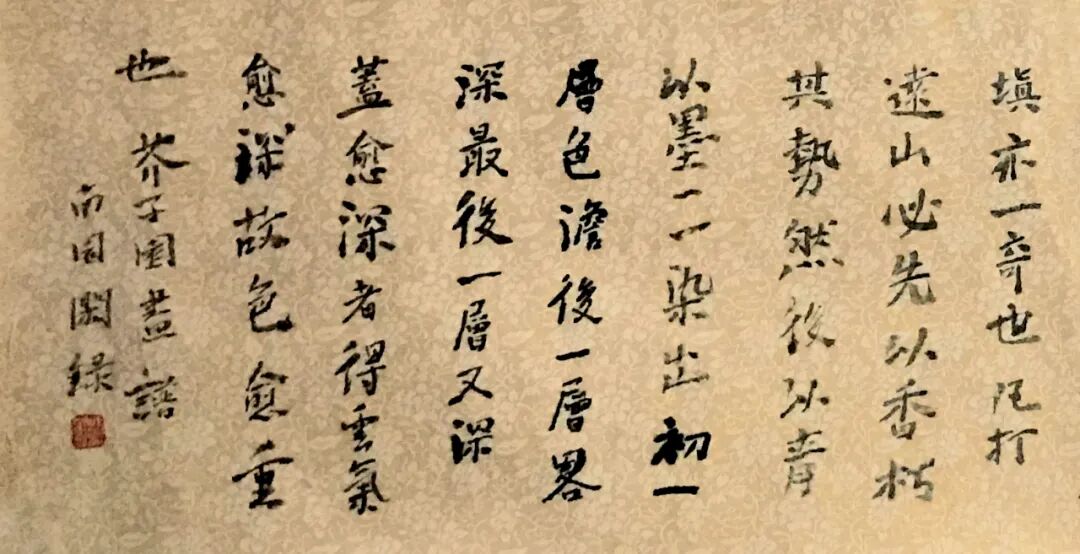 填亦一奇也凡打
遠山必先以香朽
其勢然後以青
以墨一一染出初一
層色澹後一層畧
深最後一層又深
蓋愈深者得雲氣
愈深故色愈重
也 芥子園畫譜
録